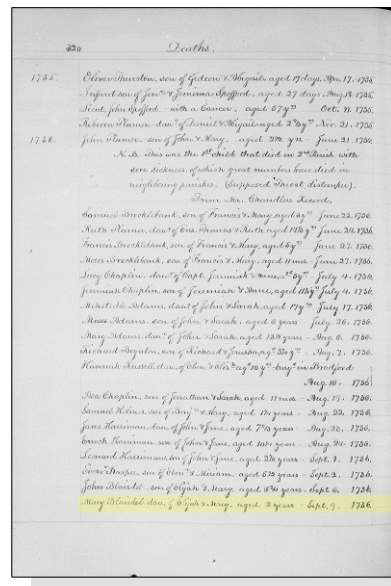 320 Deaths.
1735. Oliver Thurston, son of Gideon & Abigail, aged 17 days, Apr. 17. 1735.
Infant son of Jona & Jemima Spofford, aged 27 days, Aug. 18. 1735.
Lieut. John Spofford - with a Cancer, aged 57 yrs Oct. 1735.
Rebecca Plumer, daur of Daniel & Abigail - aged Nov. 21. 1735.
1736. John Plumer, son of John & Mary, aged 2½ yrs - June 21. 1736.
N. B. This was the 1st child that died in 2nd Parish with
sore sickness, of which great numbers have died in
neighboring parishes. (Supposed Throat distemper).
From Mr. Chandlers Record.
Samuel Brocklebank, son of Francis & Mary, aged yrs - June 22. 1736.
Ruth Plumer, daur of Ens. Thomas & Ruth, aged yrs June 24. 1736.
Francis Brocklebank, son of Francis & Mary, aged 6 yrs - June 27. 1736.
Moses Brocklebank, son of Francis & Mary, aged 11 mos - June 27. 1736.
Lucy Chaplin, daur of Capt. Jeremiah & - July 4. 1736.
Jeremiah Chaplin, son of Jeremiah & aged July 4. 1736.
Mehetable Adams, daur of John & Sarah, July 17. 1736.
Moses Adams, son of John & Sarah, aged years - July 26. 1736.
Mary Adams, daur of John & Sarah, aged years - Aug. 1736.
Richard Boynton, son of Richard & - Aug. 7. 1736.
Hannah Russell, dau. of Eben - bury'd in Bradford
Aug. 10. 1736.
Chaplin, son of Jonathan & Sarah, aged 11 mos - Aug. 19. 1736.
Samuel Holmes, son of Benj & Mary, aged years - Aug. 22. 1736.
Jane Harriman, dau. of John & Jane, aged 7½ years - Aug. 23. 1736.
Enoch Harriman, son of John & Jane, aged years - Aug. 24. 1736.
Leonard Harriman, son of John & Jane, aged years - Sept. 1736.
son of Eben & Miriam, aged 6½ years - Sept. 2. 1736.
John Blaisdel, son of Elijah & Mary, aged years - Sept. 6. 1736.
Mary Blaisdel, dau. of Elijah & Mary, aged 2 years - Sept. 9. 1736.